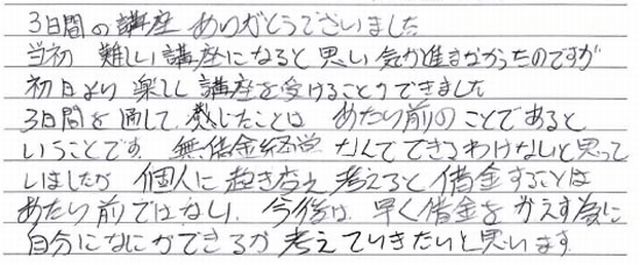 3日間の講座 ありがとうございました
当初 難しい講座になると思い気が進まなかったのですが
初日より 楽しく講座を受けることができました
3日間を通して感じたことは あたり前のことであると
いうことです 無借金経営なんてできるわけないと思って
いましたが 個人に起き変え考えると借金することは
あたり前ではない、今後は 早く借金をかえす為に
自分になにができるか考えていきたいと思います